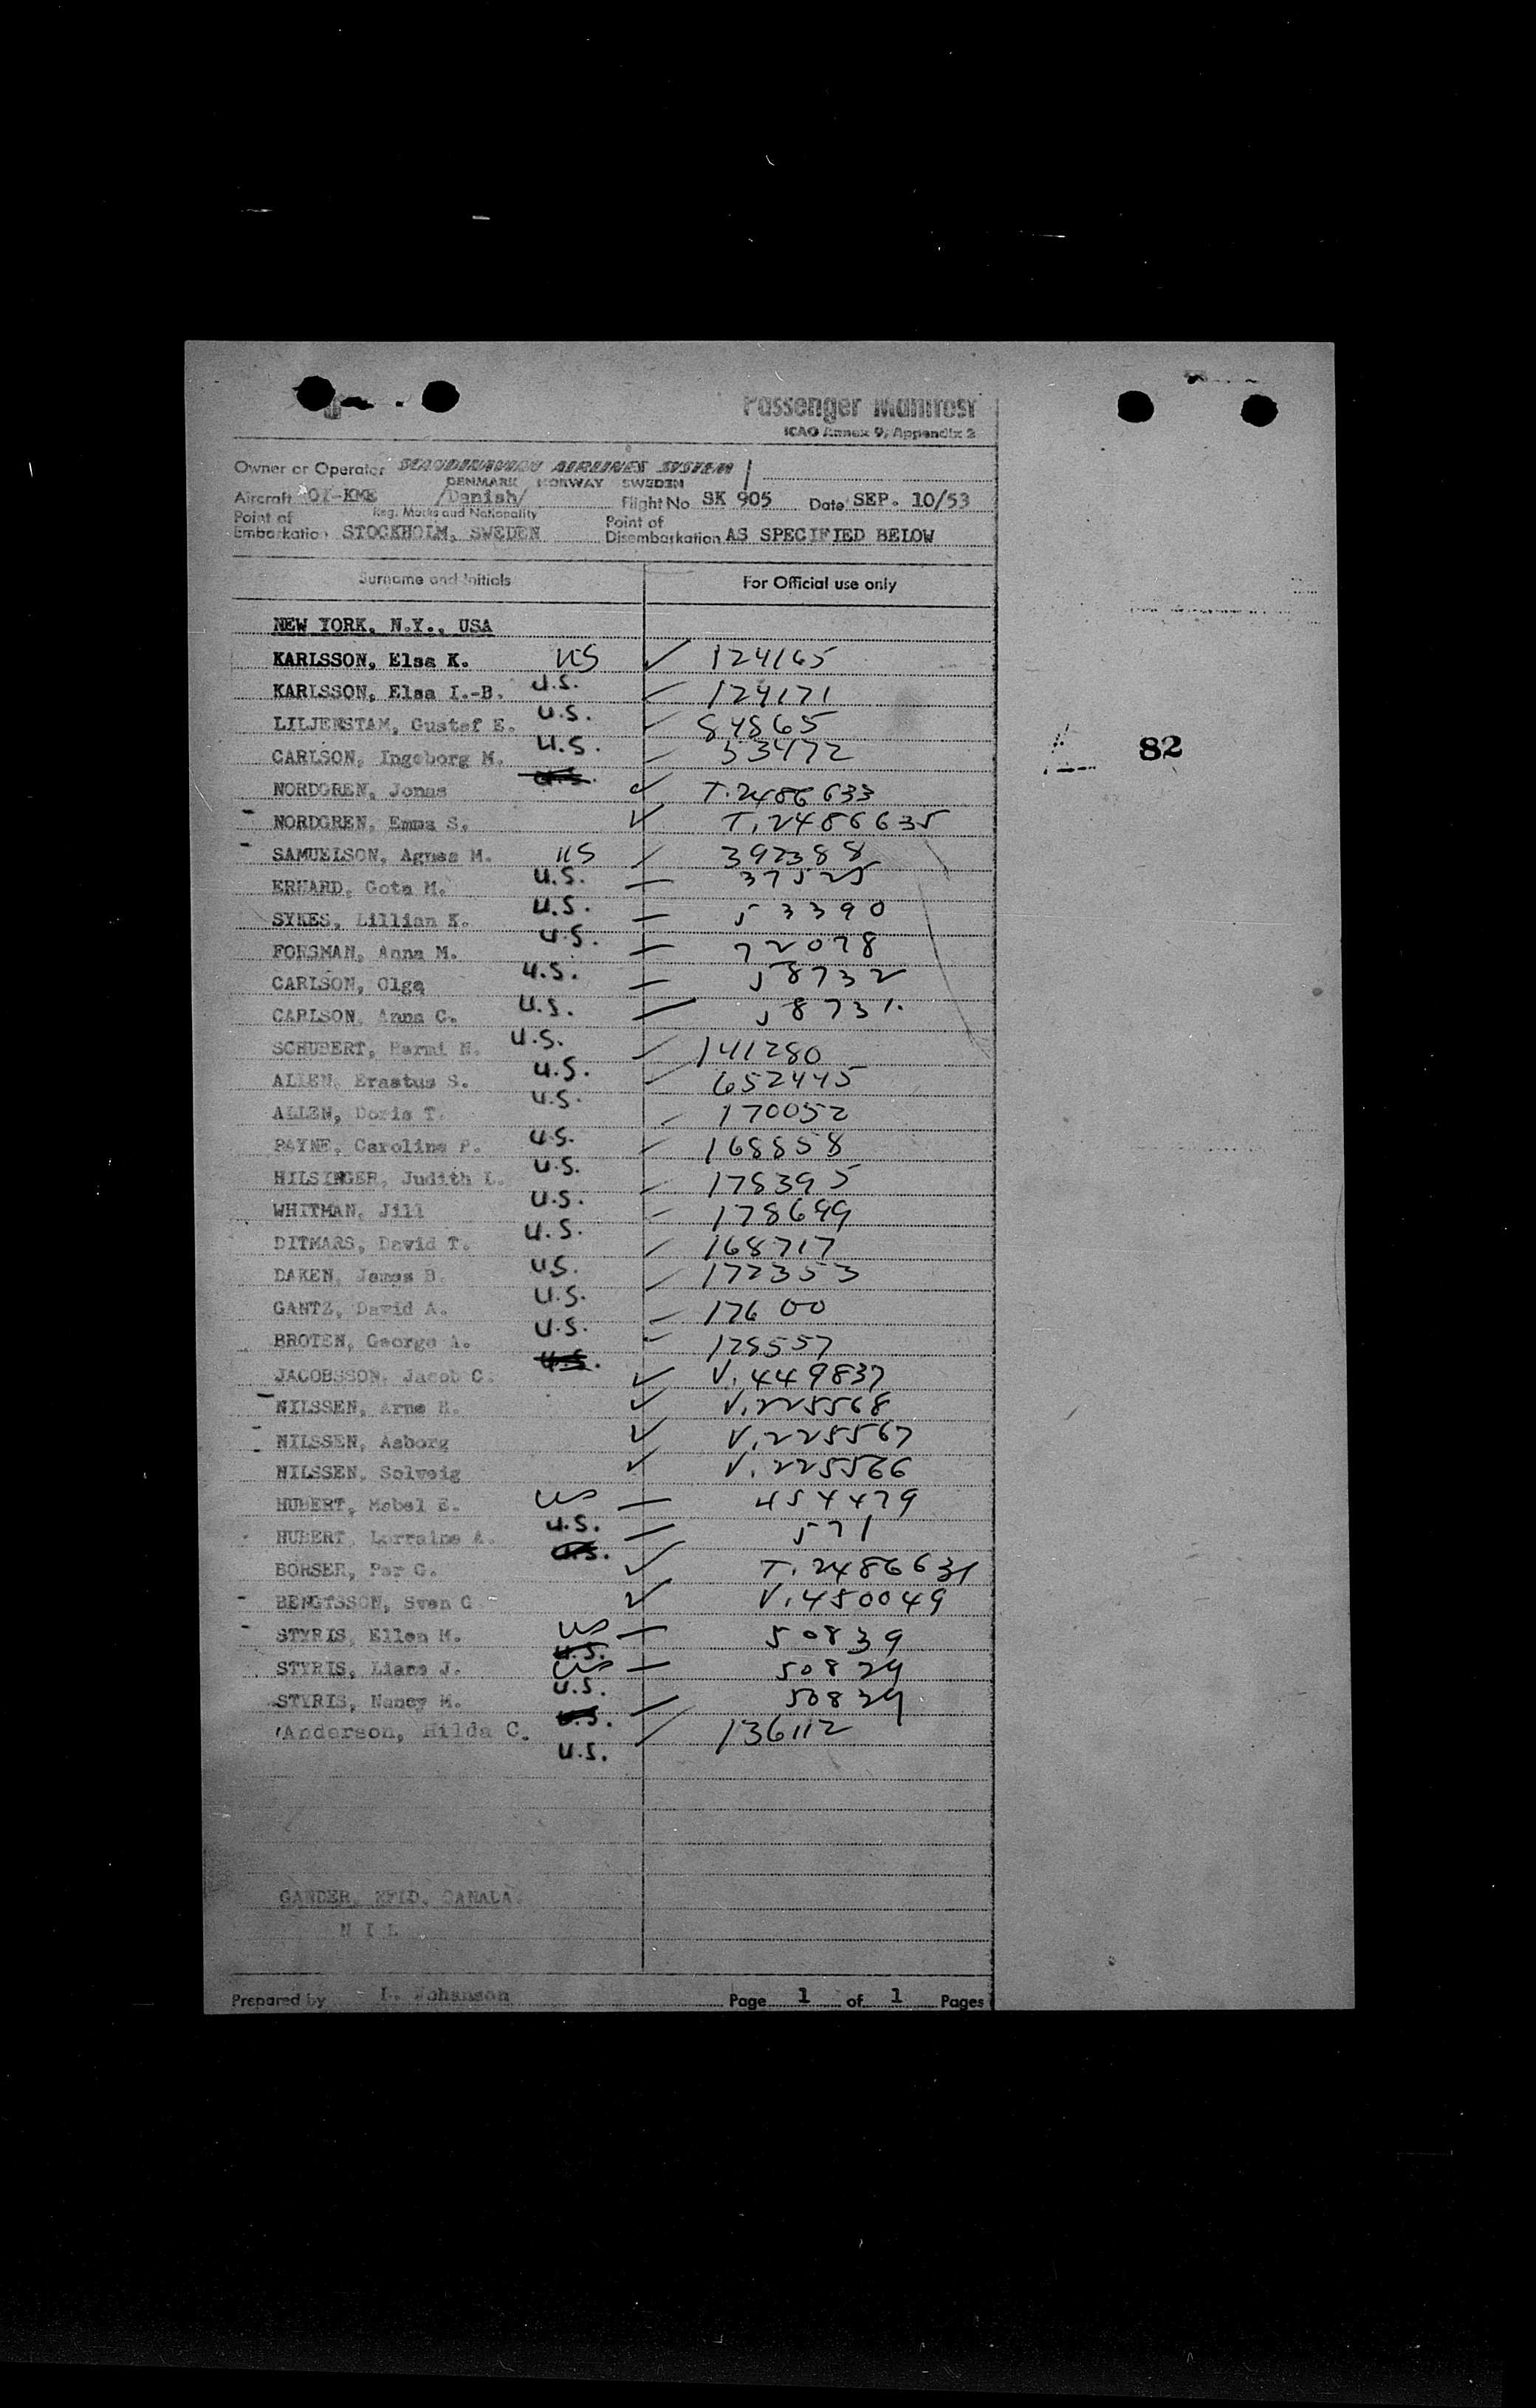 Passenger Manifest
ICAO Annex 9, Appendix 2
Owner or Operator SCANDINAVIAN AIRLINES SYSTEM
DENMARK NORWAY SWEDEN
Aircraft OY-KME /Danish/ Flight No SK 905 Date SEP. 10/53
Reg. Marks and Nationality
Point of Embarkation STOCKHOLM, SWEDEN Point of Disembarkation AS SPECIFIED BELOW
Surname and Initials For Official use only
NEW YORK, N.Y., USA
KARLSSON, Elsa K. US ✓ 124165
KARLSSON, Elsa I.-B. U.S. 124171
LILJENSTAM, Gustaf E. U.S. 84865
CARLSON, Ingeborg M. U.S. 53472
82
NORDGREN, Jonas T.2486633
NORDGREN, Emma S. T.2486635
SAMUELSON, Agnes M. US 392388
ERHARD, Gota M. U.S. 37525
SYKES, Lillian K. U.S. 53390
FORSMAN, Anna M. U.S. 72078
CARLSON, Olga U.S. 58732
CARLSON, Anna C. U.S. 58731.
SCHUBERT, Harmi N. U.S. 141280
ALLEN, Erastus S. U.S. 652445
ALLEN, Doris T. U.S. 170052
PAYNE, Caroline P. U.S. 168858
HILSINGER, Judith L. U.S. 178395
WHITMAN, Jill U.S. 178699
DITMARS, David T. U.S. 168717
DAKEN, James B. US. 172353
GANTZ, David A. U.S. 17600
BROTEN, George A. U.S. 128557
JACOBSSON, Jacob C. V.449837
NILSSEN, Arne H. V.225568
NILSSEN, Asborg V.225567
NILSSEN, Solveig V.225566
HUBERT, Mabel E. US 454479
HUBERT, Lorraine A. U.S. 571
BORSER, Per G. T.2486631
BENGTSSON, Sven G V.450049
STYRIS, Ellen M. US 50839
STYRIS, Liane J. US 50829
STYRIS, Nancy M. U.S. 50839
Anderson, Hilda C. U.S. 136112
GANDER, NFLD. CANADA
N I L
Prepared by L. Johanson Page 1 of 1 Pages